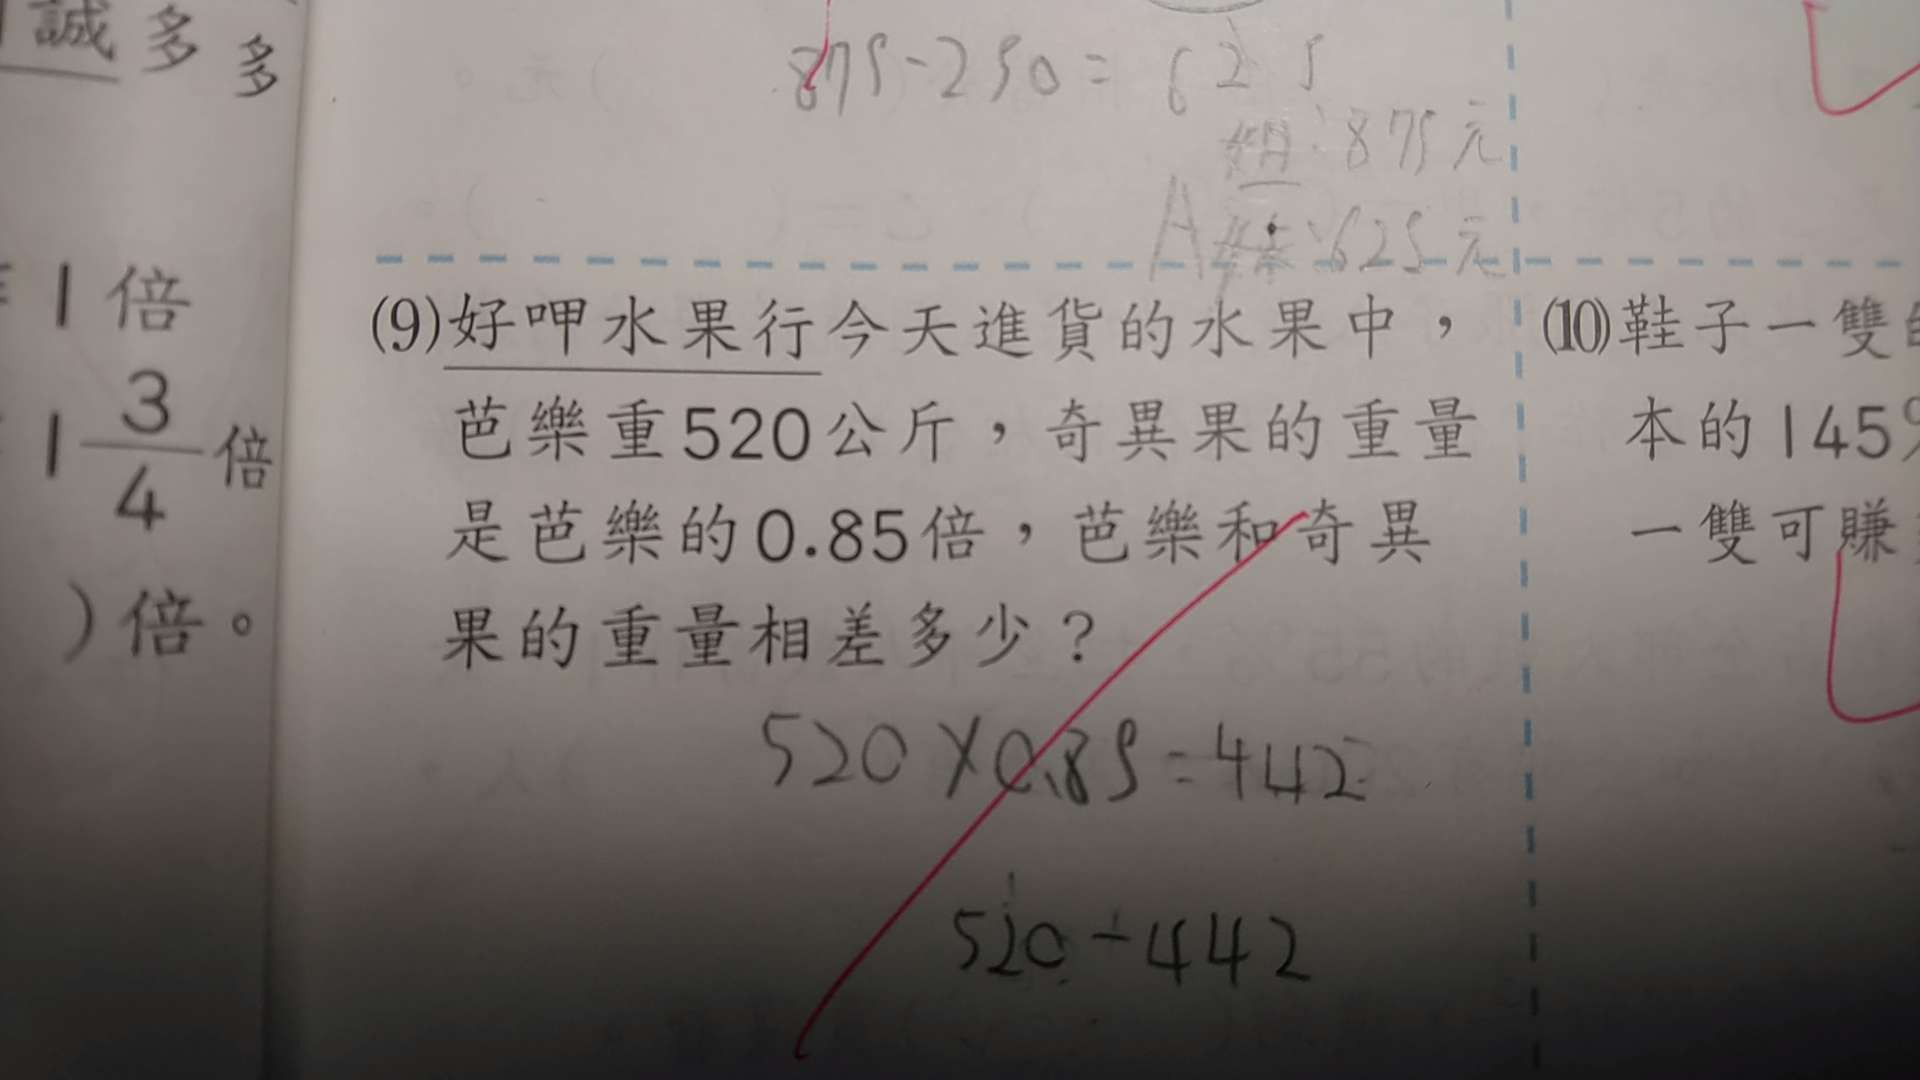 誠多多
1倍
1 3/4 倍
)倍。
875-250=625
:875元
A :625元
(9)好呷水果行今天進貨的水果中，
芭樂重520公斤，奇異果的重量
是芭樂的0.85倍，芭樂和奇異
果的重量相差多少？
520×0.85=442
520-442
(10)鞋子一雙
本的145%
一雙可賺